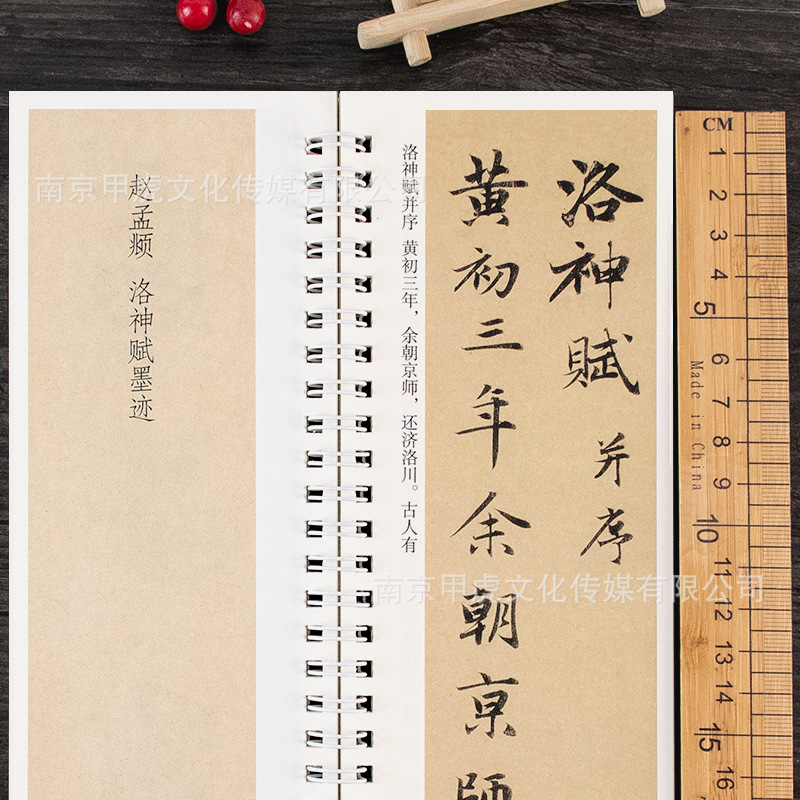 赵孟𫖯 洛神赋墨迹
洛神赋并序 黄初三年，余朝京师，还济洛川。古人有
洛神賦 并序
黄初三年余朝京師
CM
1 2 3 4 5 6 7 8 9 10 11 12 13 14 15 16
Made in China
南京甲虎文化传媒有限公司
南京甲虎文化传媒有限公司